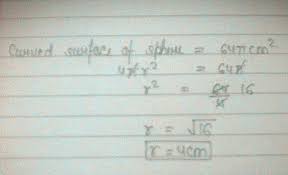 Curved surface of sphere = 64π cm²
4πr² = 64π
r² = 64/4 16
r = √16
r = 4cm